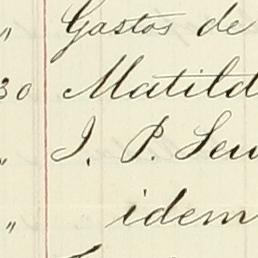 " Gastos de
30 Matild
" J. P. Sew
" idem